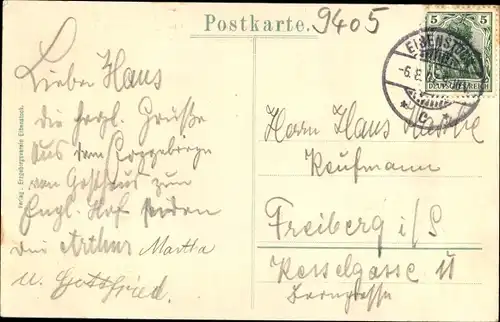 Postkarte.
9405
5 5
DEUTSCHES REICH
EIBENST
-6.8.
* c *
Lieber Hans
die herzl. Grüße
aus dem Erzgebirge
von Gasthaus zum
Engl. Hof senden
dir Arthur Martha
u. Gottfried.
Herrn Hans
Kaufmann
Freiberg i/S
Kesselgasse 11
Verlag - Erzgebirgsverein Eibenstock.